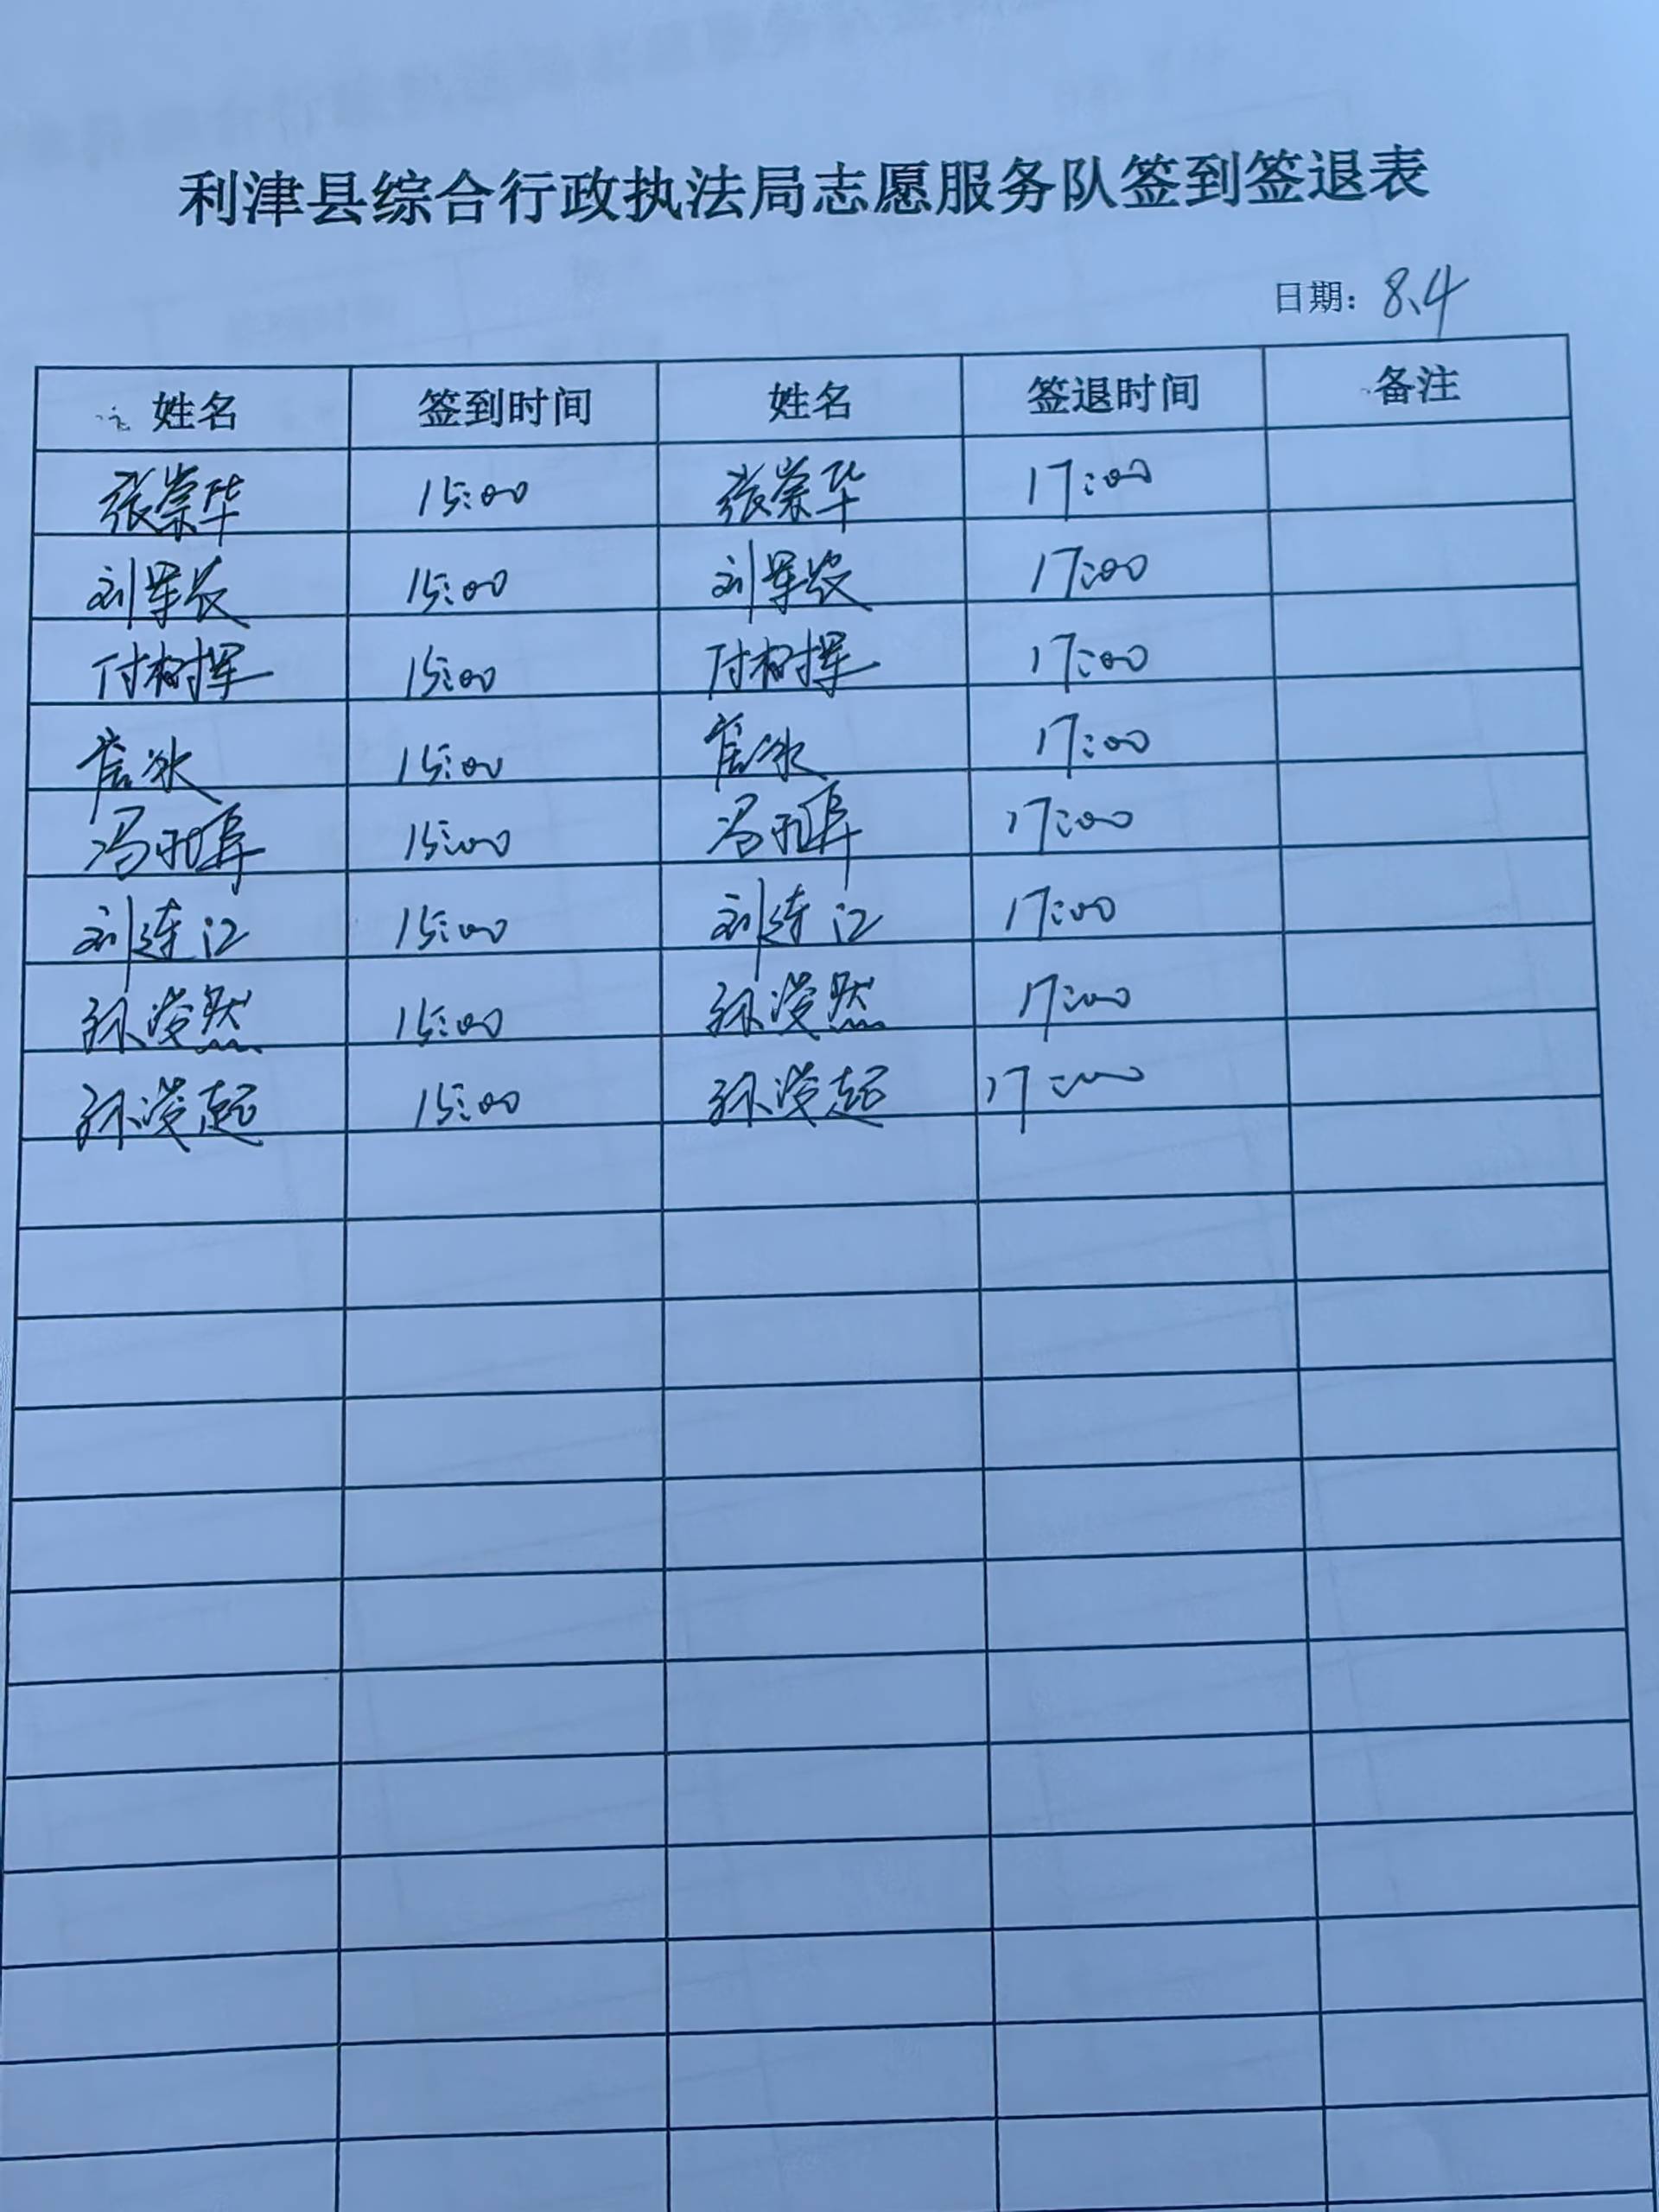 利津县综合行政执法局志愿服务队签到签退表
日期：8.4
姓名 签到时间 姓名 签退时间 备注
张崇华 15:00 张崇华 17:00
刘军农 15:00 刘军农 17:00
付树军 15:00 付树军 17:00
信冰 15:00 信冰 17:00
冯 15:00 冯 17:00
刘连江 15:00 刘连江 17:00
孙滢然 15:00 孙滢然 17:00
孙滢起 15:00 孙滢起 17:00